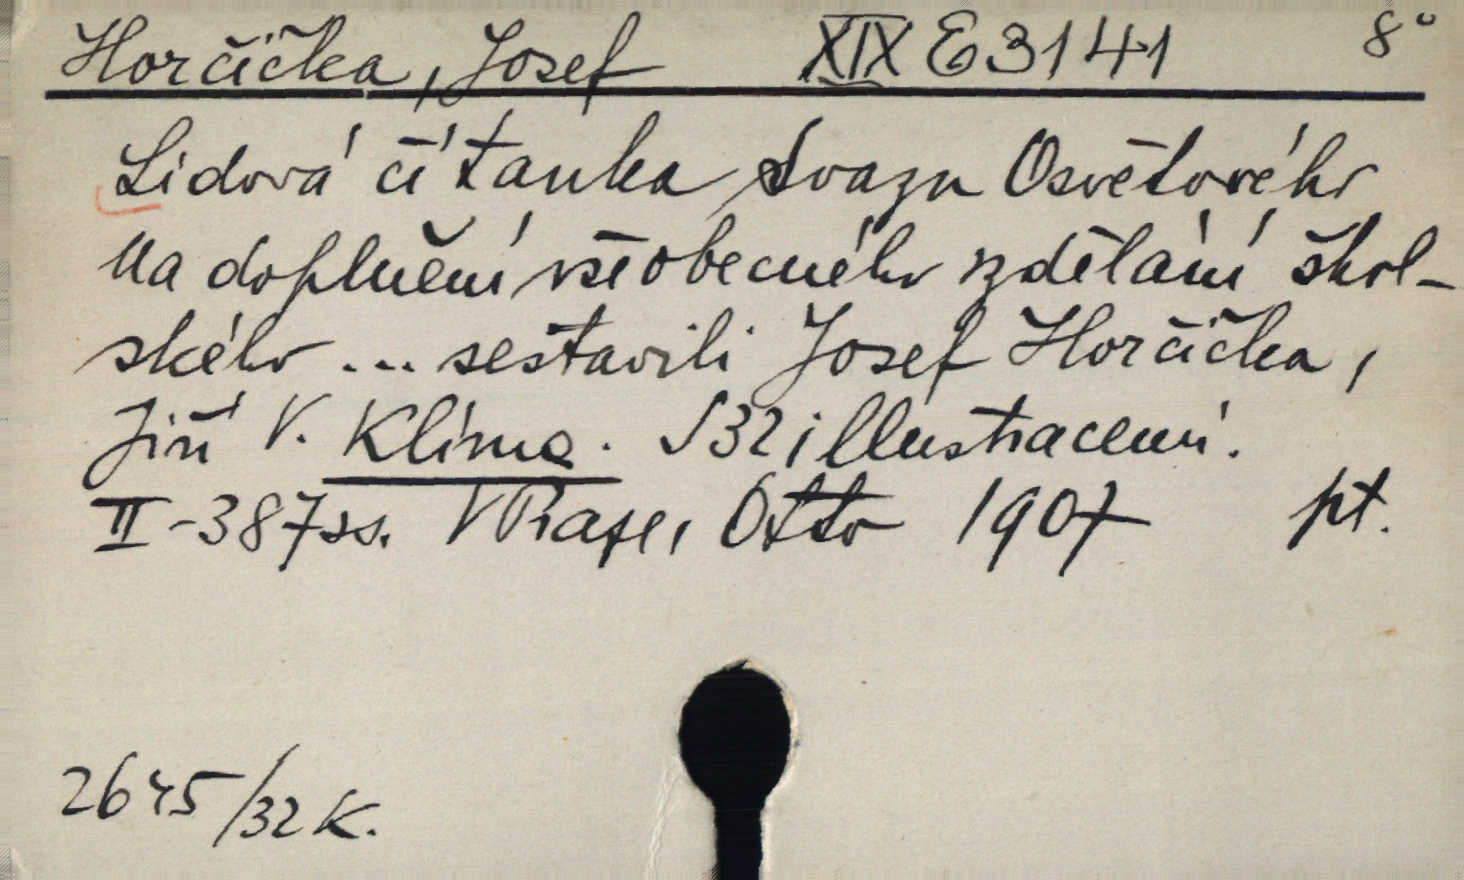 Horčička, Josef XIX E 3141 8°
Lidová čítanka Svazu Osvětového
Na doplnění všeobecného vzdělání škol-
ského ... sestavili Josef Horčička,
Jiří V. Klíma. S 32 illustracemi.
II-387 ss. V Praze, Otto 1907 pt.
2645/32 K.